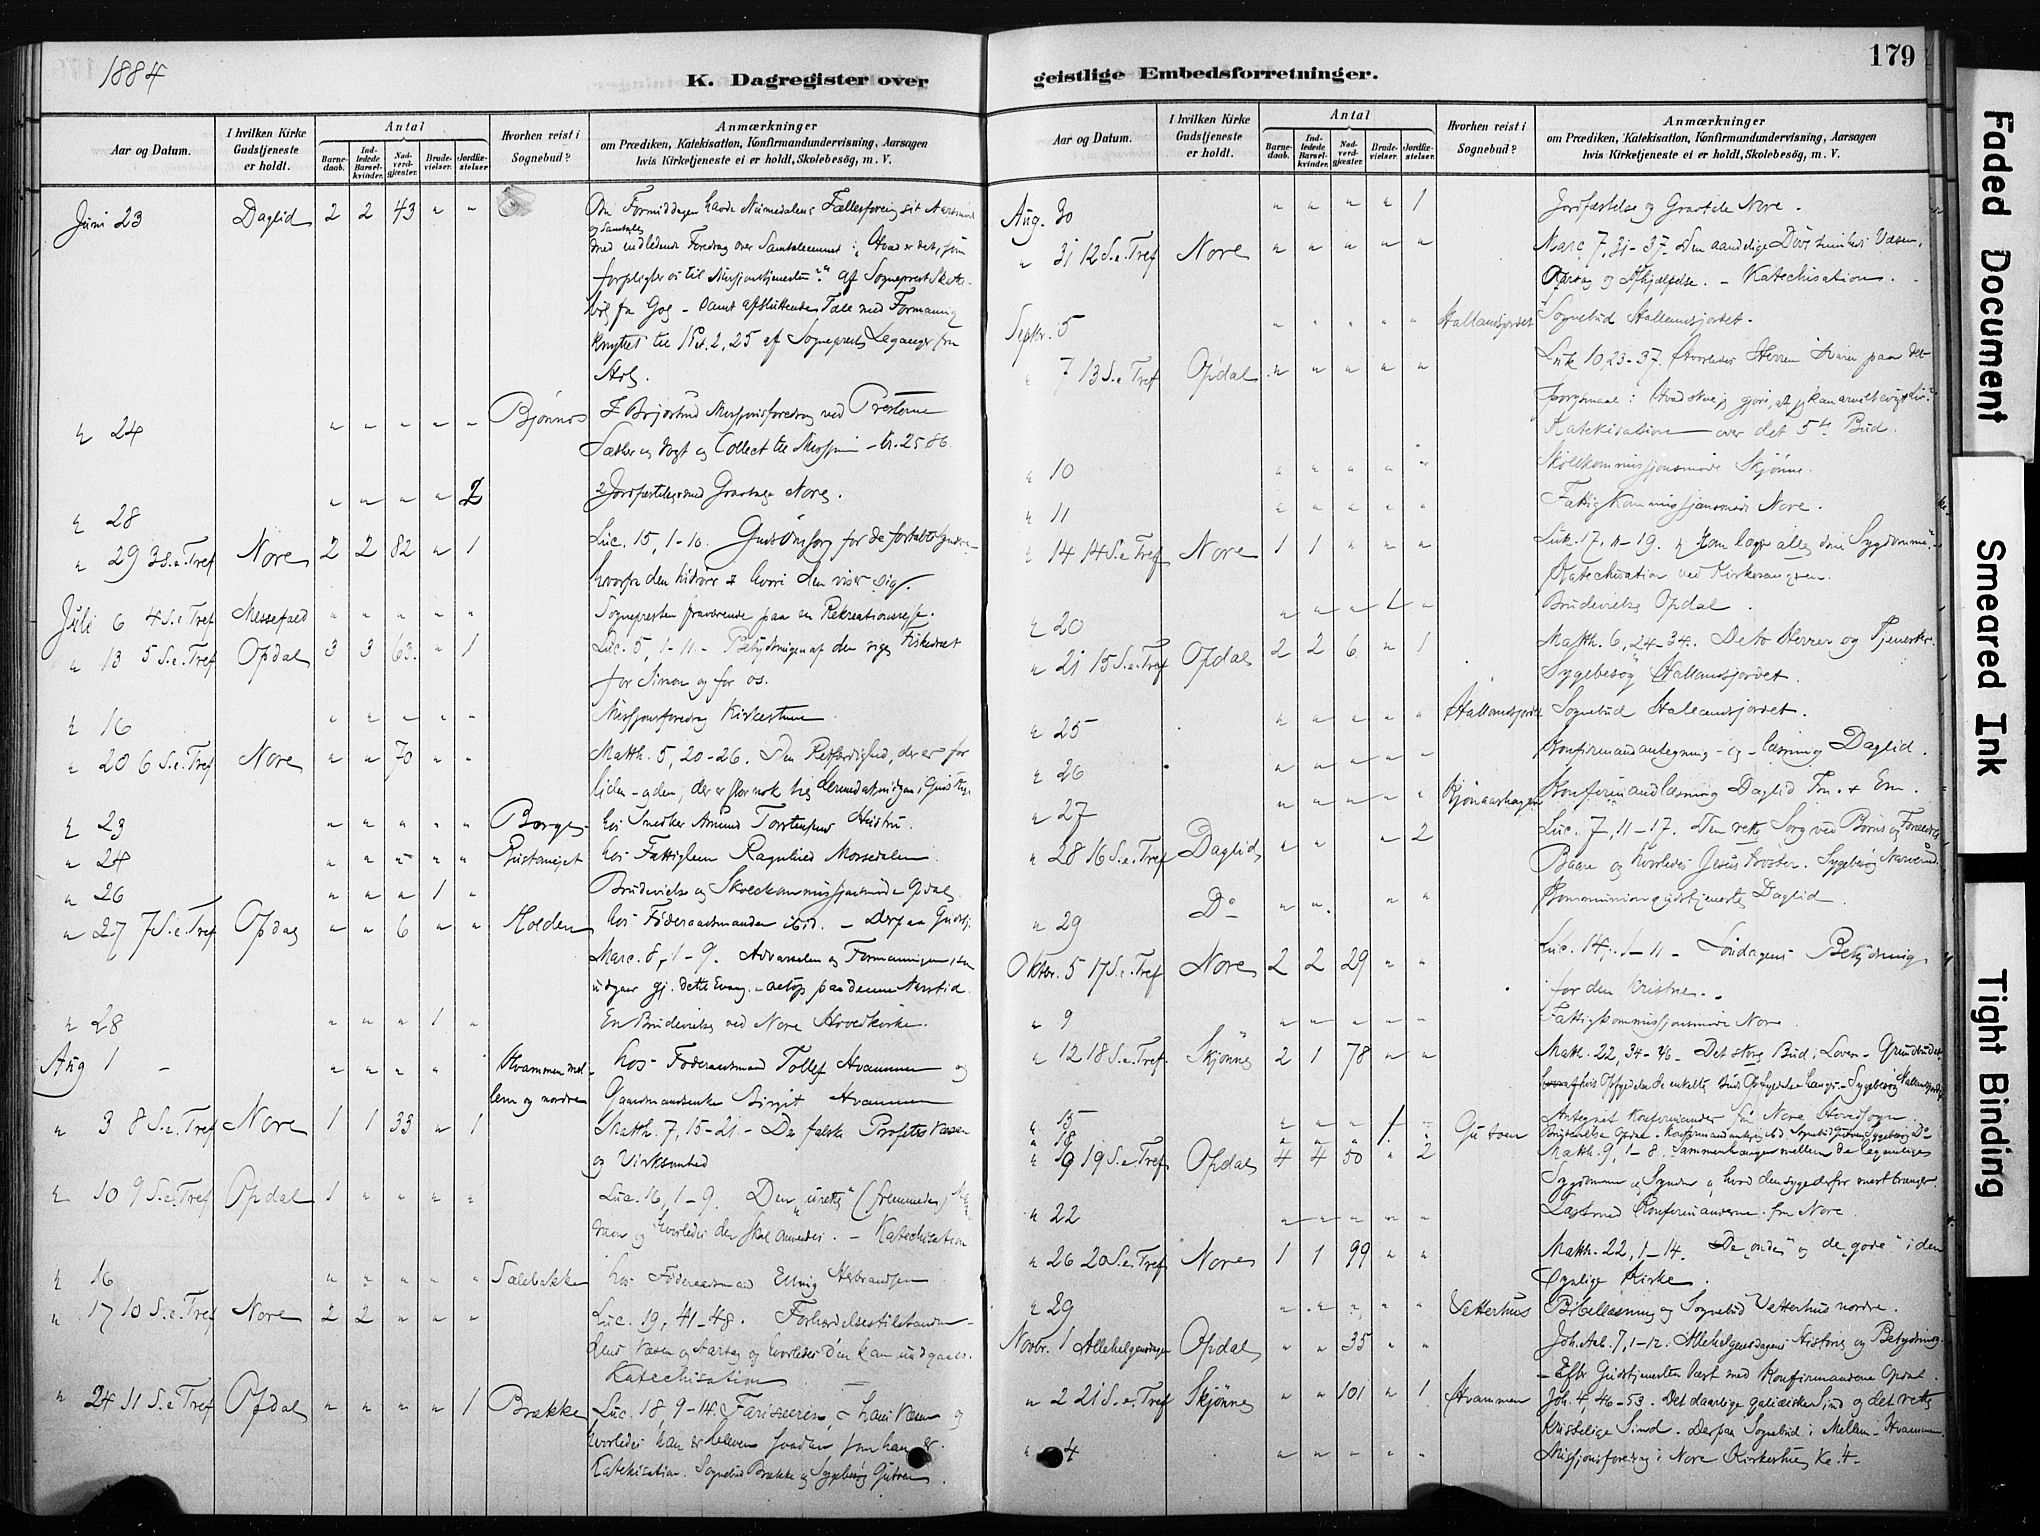 1884
K. Dagregister over
geistlige Embedsforretninger.
179
Aar og Datum.
I hvilken Kirke Gudstjeneste er holdt.
Antal
Barnedaab.
Indledede Barselkvinder.
Nadverdgjæster.
Brudevielser.
Jordfæstelser
Hvorhen reist i Sognebud?
Anmærkninger
om Prædiken, Katekisation, Konfirmandundervisning, Aarsagen
hvis Kirketjeneste ei er holdt, Skolebesøg, m. V.
Juni 23 Daglid 2 2 43 " "
og Samtale
med indledende Foredrag over Samtaleemnet: Hvad er det, som
forpligter os til Missionstjenesten?" af Sogneprest
fra Gol - samt afsluttende Tale med Formaning
knyttet til 1 Pet. 2, 25 af Sogneprest Leganger fra
" 24 " " " " " Bjønnes Missionsforedrag ved Presterne
Sæther og Vogt og Collect til Missionen - Kr. 25 86
" 28 " " " " 2 2 Jordfæstelser med Gravtale Nore.
" 29 3 S.e.Tref Nore 2 2 82 " 1 Luc. 15, 1-10. Guds Omsorg for de fortabte
hvorfra den hidrører & hvori den viser sig.
Juli 6 4 S.e.Tref Messefald " " " " " Sognepresten fraværende paa en Rekreationsreise.
" 13 5 S.e.Tref Opdal 3 3 63 " 1 Luc. 5, 1-11. - Betydningen af den rige Fiskedræt
for Simon og for os.
" 16 " " " " " Missionsforedrag Kirkestuen
" 20 6 S.e.Tref Nore " " 70 " " Matth. 5, 20-26. Den Retfærdighed, der er for
liden - og den, der er stor nok til dermed at indgaa i Guds Rige
" 23 " " " " " Borge hos Snedker Amund Torstensens Hustru.
" 24 " " " " " hos Fattiglem Ragnhild Morsedalen
" 26 " " " 1 " Brudevielse og Skolekommissionsmøde Opdal
" 27 7 S.e.Tref Opdal " " 6 " " Holden hos Føderaadsmanden ibid. - Derpaa Gudstj.
Marc. 8, 1-9. Advarselen og Formaningen som
udgaar gj. dette Evang. - netop paa denne Aarstid
" 28 " " " 1 " En Brudevielse ved Nore Hovedkirke.
Aug 1 " " " " " Hvammen mel- hos Føderaadsmand Tollef Hvammen og
lem og nordre Gaardmandsenke Birgit Hvammen
" 3 8 S.e.Tref Nore 1 1 33 " 1 Matth. 7, 15-21. - De falske Profeters Væsen
og Virksomhed
" 10 9 S.e.Tref Opdal 1 " " " " Luc. 16, 1-9. Den "urette" (fremmede) Mam-
mon og hvorledes den skal anvendes. - Katechisation
" 16 " " " " " Sælebakke hos Føderaadsmand Elling Herbrandsen
" 17 10 S.e.Tref Nore 2 2 " " " Luc. 19, 41-48. Forhærdelsestilstanden
dens Væsen og Aarsag og hvorledes den kan undgaaes.
Katechisation
" 24 11 S.e.Tref Opdal " " " " 1 Brække Luc. 18, 9-14. Farisæeren - hans Væsen og
hvorledes han er bleven saadan som han er.
Katekisation. Sognebud Brække og Sygebesøg Gutuen.
Aar og Datum.
I hvilken Kirke Gudstjeneste er holdt.
Antal
Barnedaab.
Indledede Barselkvinder.
Nadverdgjæster.
Brudevielser.
Jordfæstelser
Hvorhen reist i Sognebud?
Anmærkninger
om Prædiken, Katekisation, Konfirmandundervisning, Aarsagen
hvis Kirketjeneste ei er holdt, Skolebesög, m. V.
Aug. 30 " " " " 1 Jordfæstelse og Gravtale Nore.
" 31 12 S.e.Tref Nore " " " " " Marc. 7, 31-37. Den aandelige Døvstumheds Væsen,
Aarsag og Afhjælpelse. - Katechisation.
Septbr. 5 " " " " " Hallandsjordet Sognebud Hallandsjordet.
" 7 13 S.e.Tref Opdal " " " " " Luk 10, 23-37. Hvorledes Herren svarer paa det
Spørgsmaal: Hvad skal jeg gjøre, at jeg kan arve det evige Liv?
Katekisation over det 5te Bud.
" 10 " " " " " Skolekommissionsmøde Skjønne.
" 11 " " " " " Fattigkommissionsmøde Nore.
" 14 14 S.e.Tref Nore 1 1 " " " Luk. 17, 11-19. "Han læger alle dine Sygdomme".
Katechisation ved Kirkesangeren.
" 20 " " " 1 " Brudevielse Opdal.
" 21 15 S.e.Tref Opdal 2 2 6 " 1 Matth. 6, 24-34. De to Herrer og Tjenester.
Sygebesøg Hallandsjordet.
" 25 " " " " " Hallandsjordet Sognebud Hallandsjordet.
" 26 " " " " " Konfirmandantegning - og - læsning Daglid.
" 27 " " " " " Konfirmandlæsning Daglid Fm. & Em.
" 28 16 S.e.Tref Daglid " " " 2 Luc. 7, 11-17. Den rette Sorg ved Børns og Forældres
Baare og hvorledes Jesus trøster. Sygebesøg
" 29 Do " " " " Kommuniongudstjeneste Daglid.
Oktbr. 5 17 S.e.Tref Nore 2 2 29 " " Luc. 14, 1-11 - Søndagens Betydning
for den Kristne.
" 9 " " " " " Fattigkommissionsmøde Nore.
" 12 18 S.e.Tref. Skjønne 2 1 78 " " Matth. 22, 34-46 - Det store Bud i Loven - Grundbudet
" 15 " " " " " Antegnet Konfirmander fra Nore Hovedsogn.
" 18 " " " 1 " Gutuen
" 19 19 S.e.Tref Opdal 4 4 50 " 2 Matth. 9, 1-8. Sammenhængen mellem de legemlige
Sygdomme og Synden og hvad den syge derfor mest trænger.
" 22 " " " " " Læst med Konfirmanderne fra Nore.
" 26 20 S.e.Tref Nore 1 1 99 " " Matth. 22, 1-14. De "onde" og de "gode" i den
synlige Kirke.
" 29 " " " " " Vetterhus Bibellæsning og Sognebud Vetterhus nordre.
Novbr. 1 Allehelgensdagen Opdal " " 35 " " Joh. Aab. 7, 1-12. Allehelgensdagens Historie og Betydning.
- Efter Gudstjenesten læst med Konfirmanderne Opdal.
" 2 21 S.e.Tref Skjønne " " 101 " 1 Hvammen Joh. 4, 46-53. Det daarlige galilæiske Sind og det rette
kristelige Sind. Derpaa Sognebud i Mellem-Hvammen.
" 4 " " " " " Missionsforedrag i Nore Kirkestue Kl. 4.
Faded Document
Smeared Ink
Tight Binding